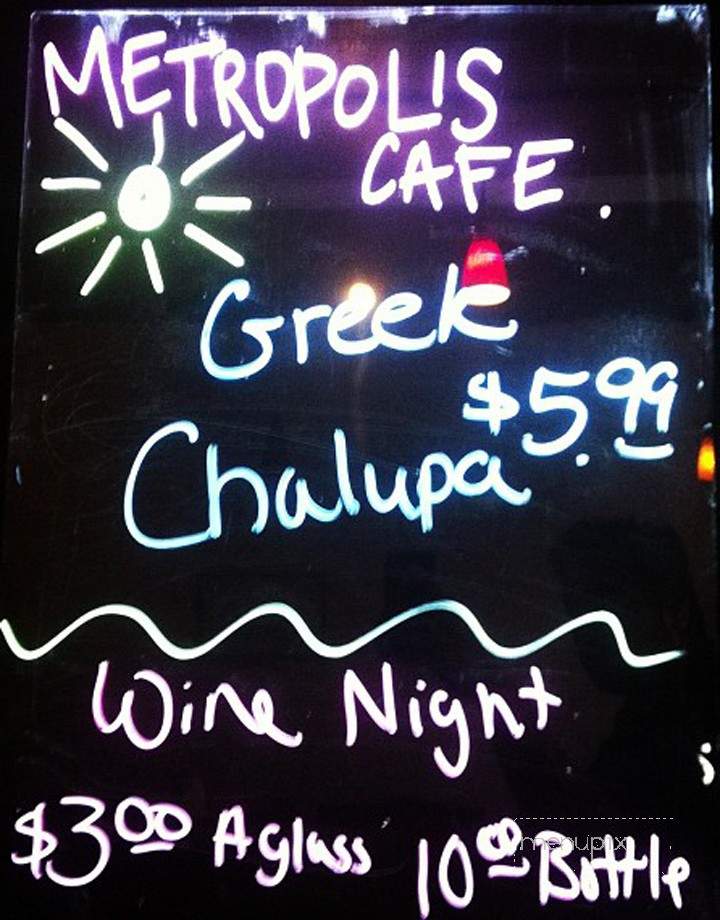 METROPOLIS
CAFE.
Greek
$5.99
Chalupa
Wine Night
$3.00 A glass 10.00 Bottle
menupix